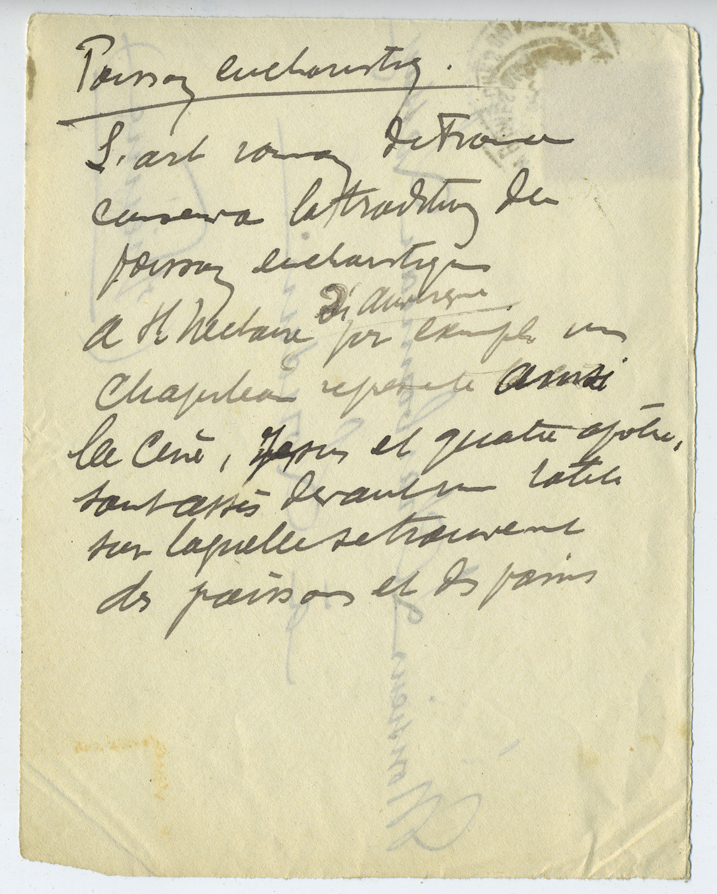 Poisson eucharistiq.
L'art roman de France
conserva la tradition du
poisson eucharistique
d'Auvergne
a St Nectaire par exemple un
Chapiteau represente ainsi
la Cène, Jesus et quatre apôtres,
sont assis devant une table
sur laquelle se trouvent
des poissons et des pains